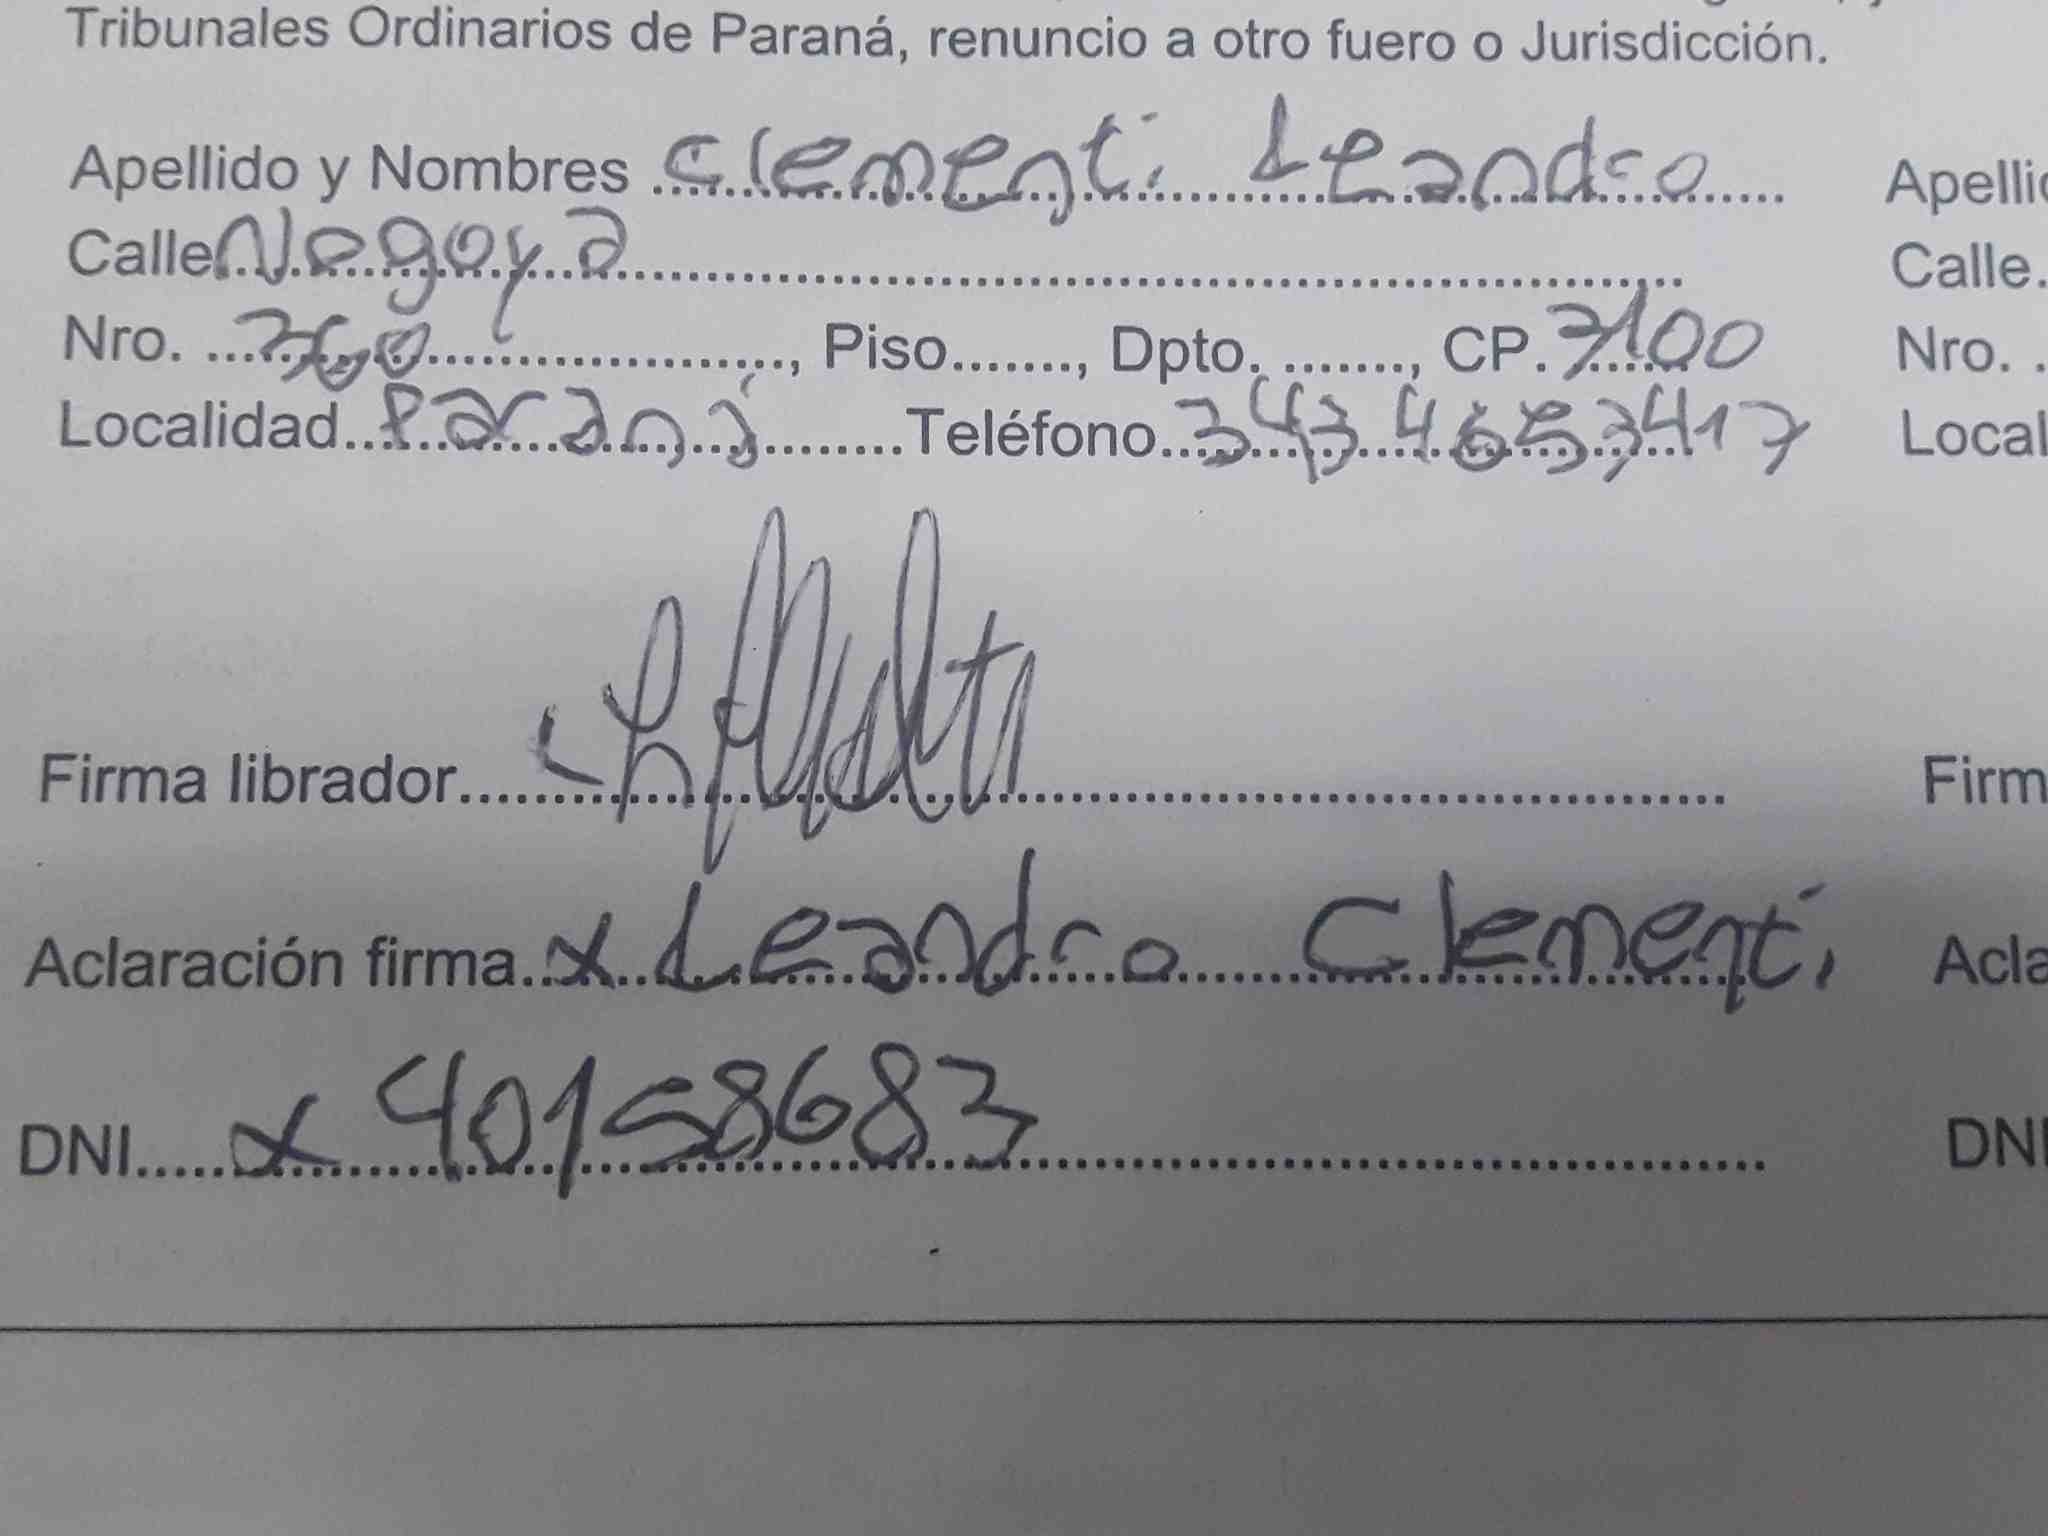 Tribunales Ordinarios de Paraná, renuncio a otro fuero o Jurisdicción.
Apellido y Nombres Clementi Leandro
Calle Nogoya
Nro. 360, Piso......., Dpto. ........, CP. 3100
Localidad Paraná Teléfono 343 4653417
Firma librador
Aclaración firma x Leandro Clementi
DNI x 40158683
Calle.
Nro. .
DNI